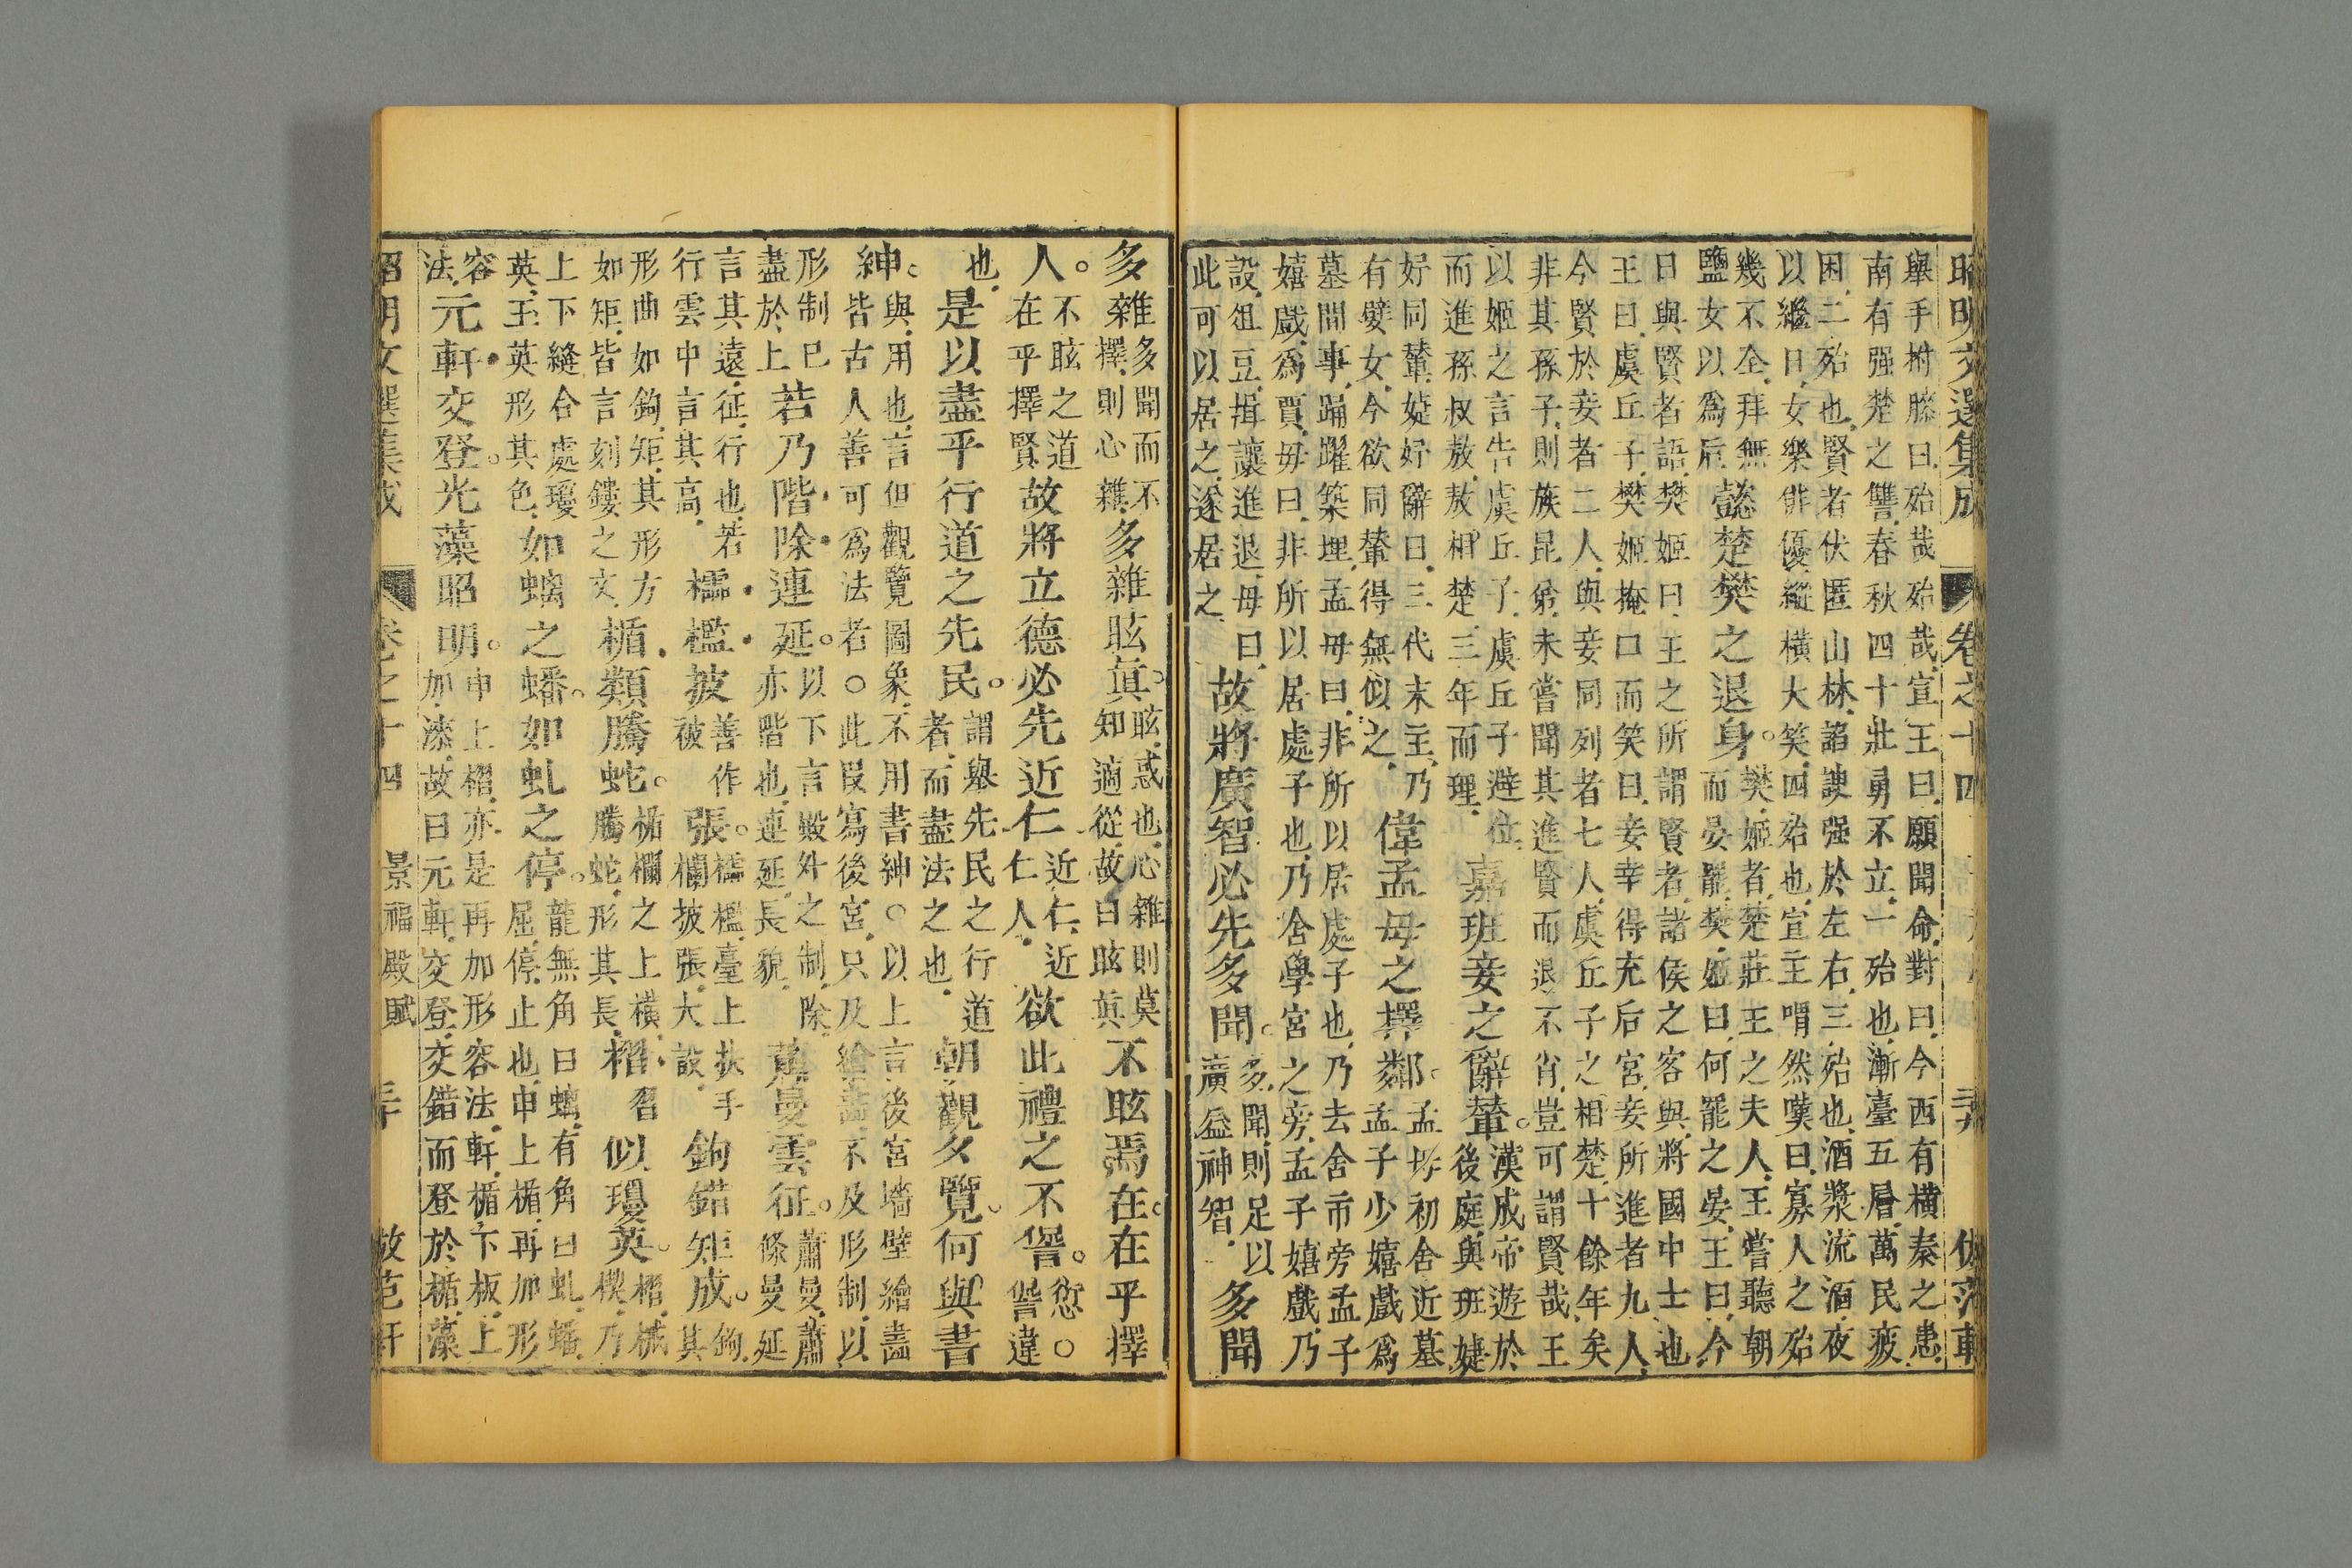 昭明文選集成 卷之十四
舉手拊膝曰殆哉殆哉宣王曰願聞命對曰今西有橫秦之患
南有强楚之讐春秋四十壯勇不立一殆也漸臺五層萬民疲
困二殆也賢者伏匿山林諂諛强於左右三殆也酒漿流湎夜
以繼日女樂俳優縱橫大笑四殆也宣王喟然嘆曰寡人之殆
幾不全拜無
鹽女以爲后
懿楚樊之退身
樊姬者楚莊王之夫人王嘗聽朝
而晏罷樊姬曰何罷之晏王曰今
日與賢者語樊姬曰王之所謂賢者諸侯之客與將國中士也
王曰虞丘子樊姬掩口而笑曰妾幸得充后宮妾所進者九人
今賢於妾者二人與妾同列者七人虞丘子之相楚十餘年矣
非其孫子則族昆弟未嘗聞其進賢而退不肖豈可謂賢哉王
以姬之言告虞丘子虞丘子避位
而進孫叔敖敖相楚三年而理
嘉班妾之辭輦
漢成帝遊於
後庭與班婕
妤同輦婕妤辭曰三代末主乃
有嬖女今欲同輦得無似之
偉孟母之擇鄰
孟母初舍近墓
孟子少嬉戲爲
墓間事踊躍築埋孟母曰非所以居處子也乃去舍市旁孟子
嬉戲爲賈毋曰非所以居處子也乃舍學宮之旁孟子嬉戲乃
設俎豆揖讓進退母曰
此可以居之遂居之
故將廣智必先多聞
多聞則足以
廣益神智
多聞
多雜
多聞而不
擇則心雜
多雜眩眞
眩惑也心雜則莫
知適從故曰眩眞
不眩焉在在乎擇
人
不眩之道
在乎擇賢
故將立德必先近仁
近仁近
仁人
欲此禮之不諐
愆
諐違
也
是以盡乎行道之先民
謂舉先民之行道
者而盡法之也
朝觀夕覽何與書
紳
與用也言但觀覽圖象不用書紳○以上言後宮墻壁繪畵
皆古人善可爲法者○此叚寫後宮只及繪畵不及形制以
形制已
盡於上
若乃階除連延
以下言殿外之制除
亦階也連延長貌
蕭曼雲征
蕭曼蕭
條曼延
言其遠征行也若
行雲中言其高
櫺檻披
善作
被
張
櫺檻臺上扶手
欄披張大設
鉤錯矩成
鉤
其
形曲如鉤矩其形方
如矩皆言刻鏤之文
楯類騰蛇
楯欄之上橫
騰蛇形其長
槢
習
似瓊英
槢械
楔乃
上下縫合處瓊
英玉英形其色
如螭之蟠如虬之停
龍無角曰螭有角曰虬蟠
屈停止也申上楯再加形
容
法
元軒交登光藻昭明
申上槢亦是再加形容法軒楯下板上
加漆故曰元軒交登交錯而登於楯藻
景福殿賦